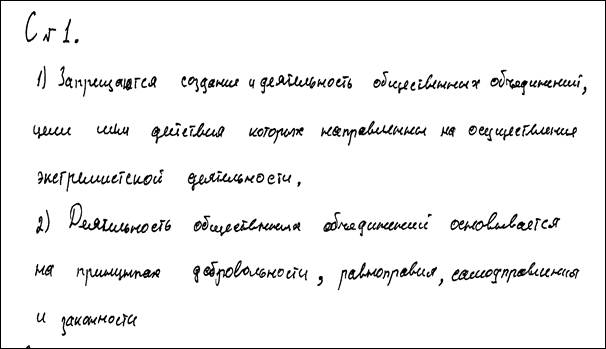 С № 1.
1) Запрещаются создание и деятельность общественных объединений,
цели или действия которых направленны на осуществление
экстремистской деятельности.
2) Деятельность общественных объединений основывается
на принципах добровольности, равноправия, самоуправления
и законности